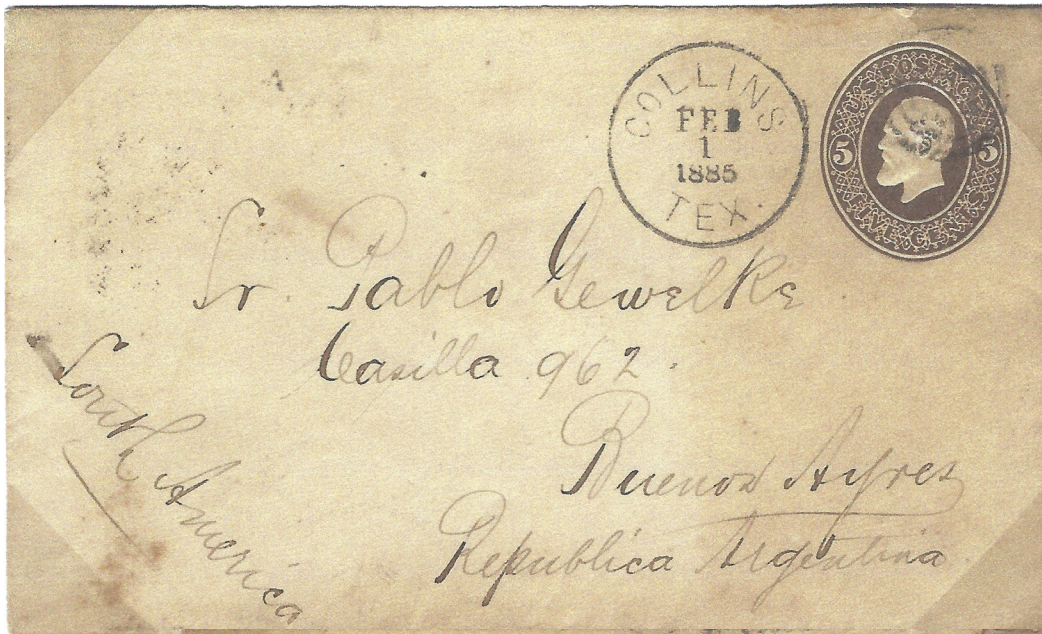 COLLINS
FEB
1
1885
TEX.
U.S. POSTAGE
5 5
FIVE CENTS
Sr. Pablo Gewelke
Casilla 962.
Buenos Ayres
Republica Argentina
South America